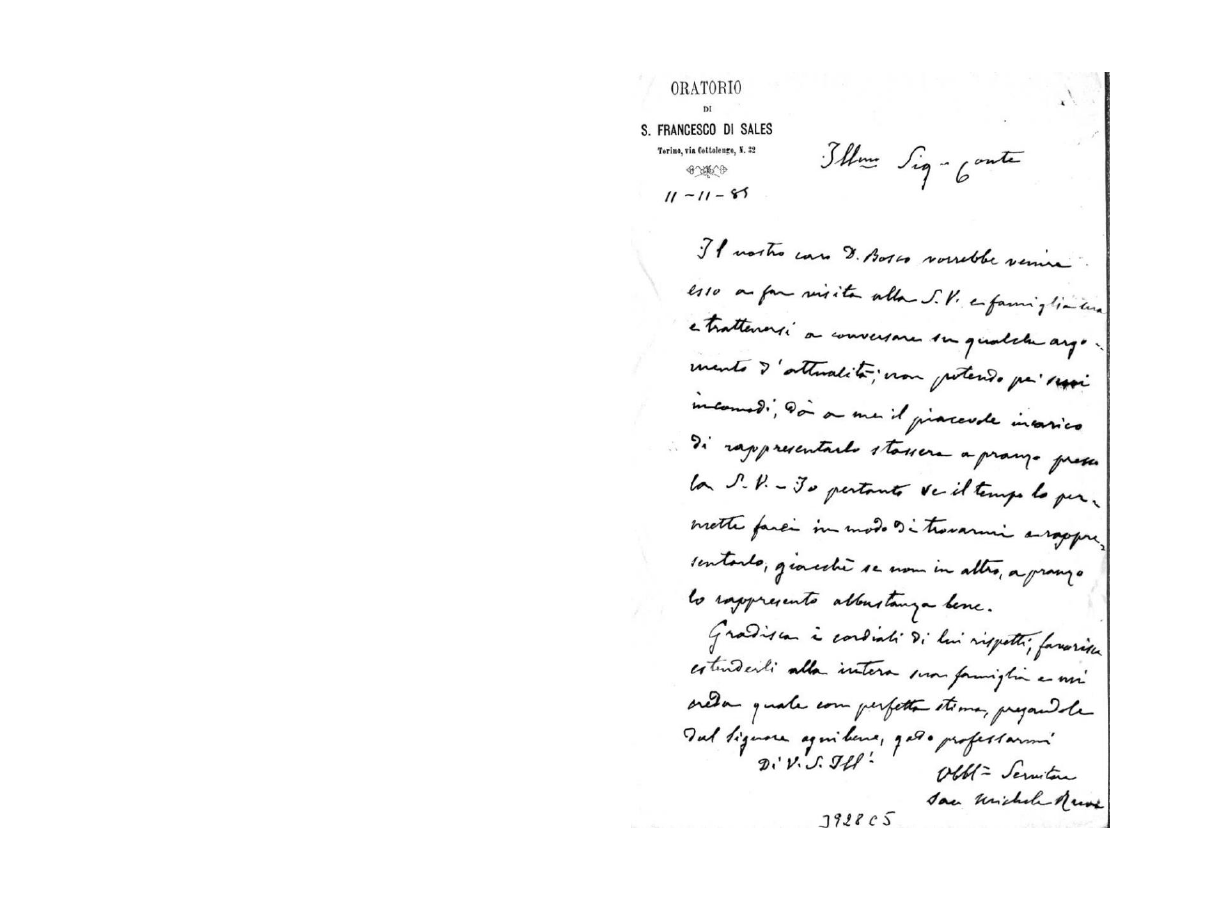 ORATORIO
DI
S. FRANCESCO DI SALES
Torino, via Cottolengo, N. 32
11-11-85
Illmo Sig. Conte
Il nostro caro D. Bosco vorrebbe venire
esso a far visita alla S. V. e famiglia sua
e trattenersi a conversare su qualche argo-
mento d'attualità; non potendo pei suoi
incomodi, dà a me il piacevole incarico
di rappresentarlo stassera a pranzo presso
la S. V. - Io pertanto se il tempo lo per-
mette farò in modo di trovarmi a rappre-
sentarlo, giacchè se non in altro, a pranzo
lo rappresento abbastanza bene.
Gradisca i cordiali di lui rispetti, favorisca
estenderli alla intera sua famiglia e mi
creda quale con perfetta stima, pregandole
dal Signore ogni bene, godo professarmi
Di V. S. Ill.
Obbl. Servitore
Sac. Michele Rua
3928 C5